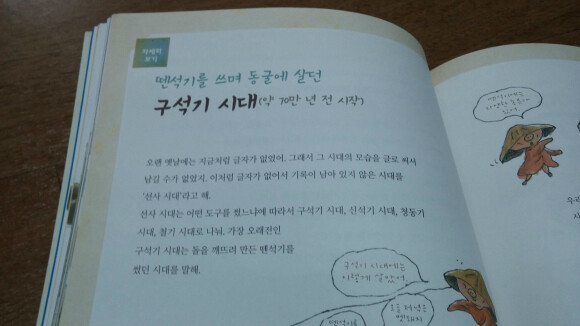 뗀석기를 쓰며 동굴에 살던
구석기 시대(약 70만 년 전 시작)
오랜 옛날에는 지금처럼 글자가 없었어. 그래서 그 시대의 모습을 글로 써서
남길 수가 없었지. 이처럼 글자가 없어서 기록이 남아 있지 않은 시대를
'선사 시대'라고 해.
선사 시대는 어떤 도구를 썼느냐에 따라서 구석기 시대, 신석기 시대, 청동기
시대, 철기 시대로 나눠. 가장 오래전인
구석기 시대는 돌을 깨뜨려 만든 뗀석기를
썼던 시대를 말해.
구석기 시대에는
이렇게 살았어.
오늘 저녁은
멧돼지
뗀석기를
뗀석기에는
다양한
우리